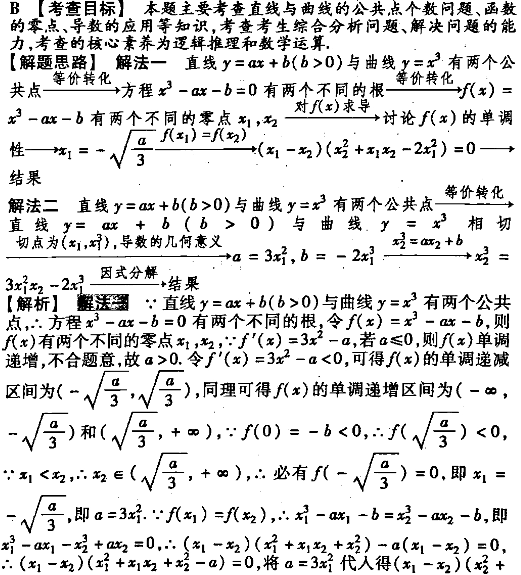 B 【考查目标】 本题主要考查直线与曲线的公共点个数问题、函数
的零点、导数的应用等知识,考查考生综合分析问题、解决问题的能
力,考查的核心素养为逻辑推理和数学运算.
【解题思路】 解法一 直线 y=ax+b(b>0)与曲线 y=x³ 有两个公
共点 —等价转化→ 方程 x³-ax-b=0 有两个不同的根 —等价转化→ f(x)=
x³-ax-b 有两个不同的零点 x₁,x₂ —对f(x)求导→ 讨论 f(x)的单调
性 → x₁=-√(a/3) —f(x₁)=f(x₂)→ (x₁-x₂)(x₂²+x₁x₂-2x₁²)=0 →
结果
解法二 直线 y=ax+b(b>0)与曲线 y=x³ 有两个公共点 —等价转化→
直线 y=ax+b(b>0)与曲线 y=x³ 相切
—切点为(x₁,x₁³),导数的几何意义→ a=3x₁²,b=-2x₁³ —x₂³=ax₂+b→ x₂³=
3x₁²x₂-2x₁³ —因式分解→ 结果
【解析】 解法一 ∵直线 y=ax+b(b>0)与曲线 y=x³ 有两个公共
点,∴方程 x³-ax-b=0 有两个不同的根,令 f(x)=x³-ax-b,则
f(x)有两个不同的零点 x₁,x₂,∵f′(x)=3x²-a,若 a≤0,则 f(x)单调
递增,不合题意,故 a>0.令 f′(x)=3x²-a<0,可得 f(x)的单调递减
区间为(-√(a/3),√(a/3)),同理可得 f(x)的单调递增区间为(-∞,
-√(a/3))和(√(a/3),+∞),∵f(0)=-b<0,∴f(√(a/3))<0,
∵x₁<x₂,∴x₂∈(√(a/3),+∞),∴必有 f(-√(a/3))=0,即 x₁=
-√(a/3),即 a=3x₁².∵f(x₁)=f(x₂),∴x₁³-ax₁-b=x₂³-ax₂-b,即
x₁³-ax₁-x₂³+ax₂=0,∴(x₁-x₂)(x₁²+x₁x₂+x₂²)-a(x₁-x₂)=0,
∴(x₁-x₂)(x₁²+x₁x₂+x₂²-a)=0,将 a=3x₁² 代入得(x₁-x₂)(x₂²+